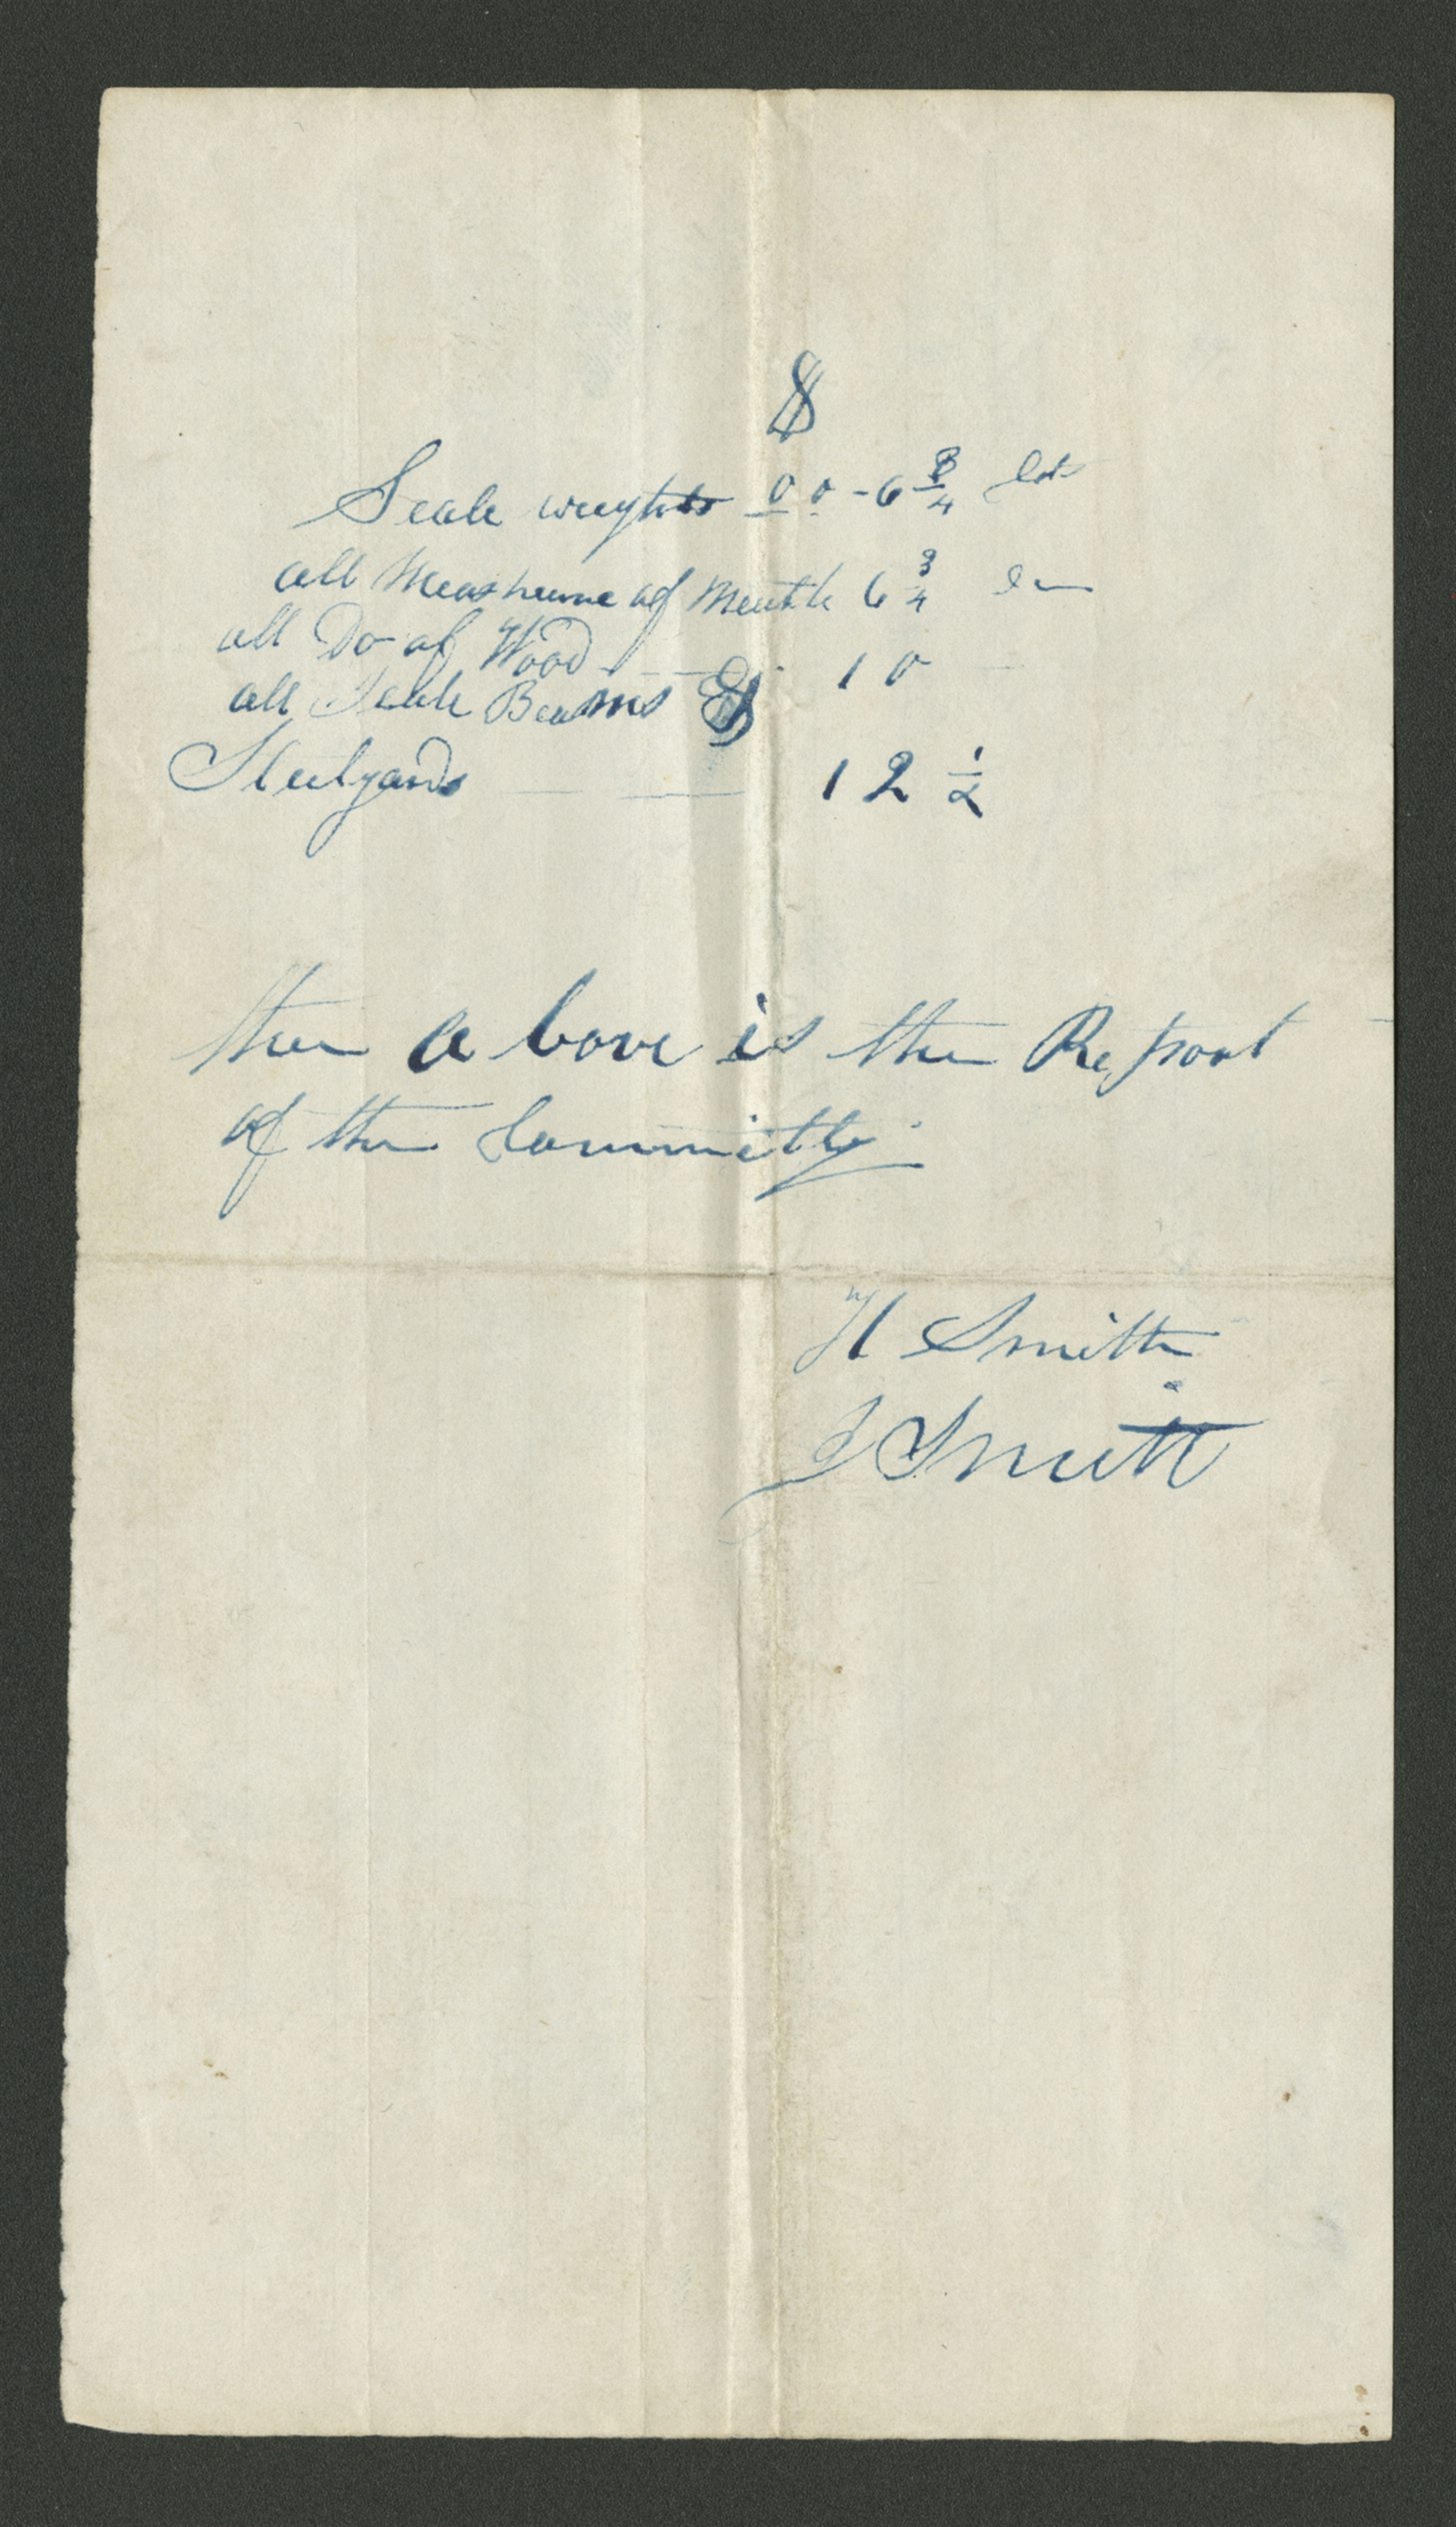 $
Scale weights 00-6 3/4 cts
all Meashure of Mettle 6 3/4
all Do of Wood 10
all Scale Beams &
Steelyards 12 1/2
the a bove is the Report
of the Committy
H Smith
J Smith